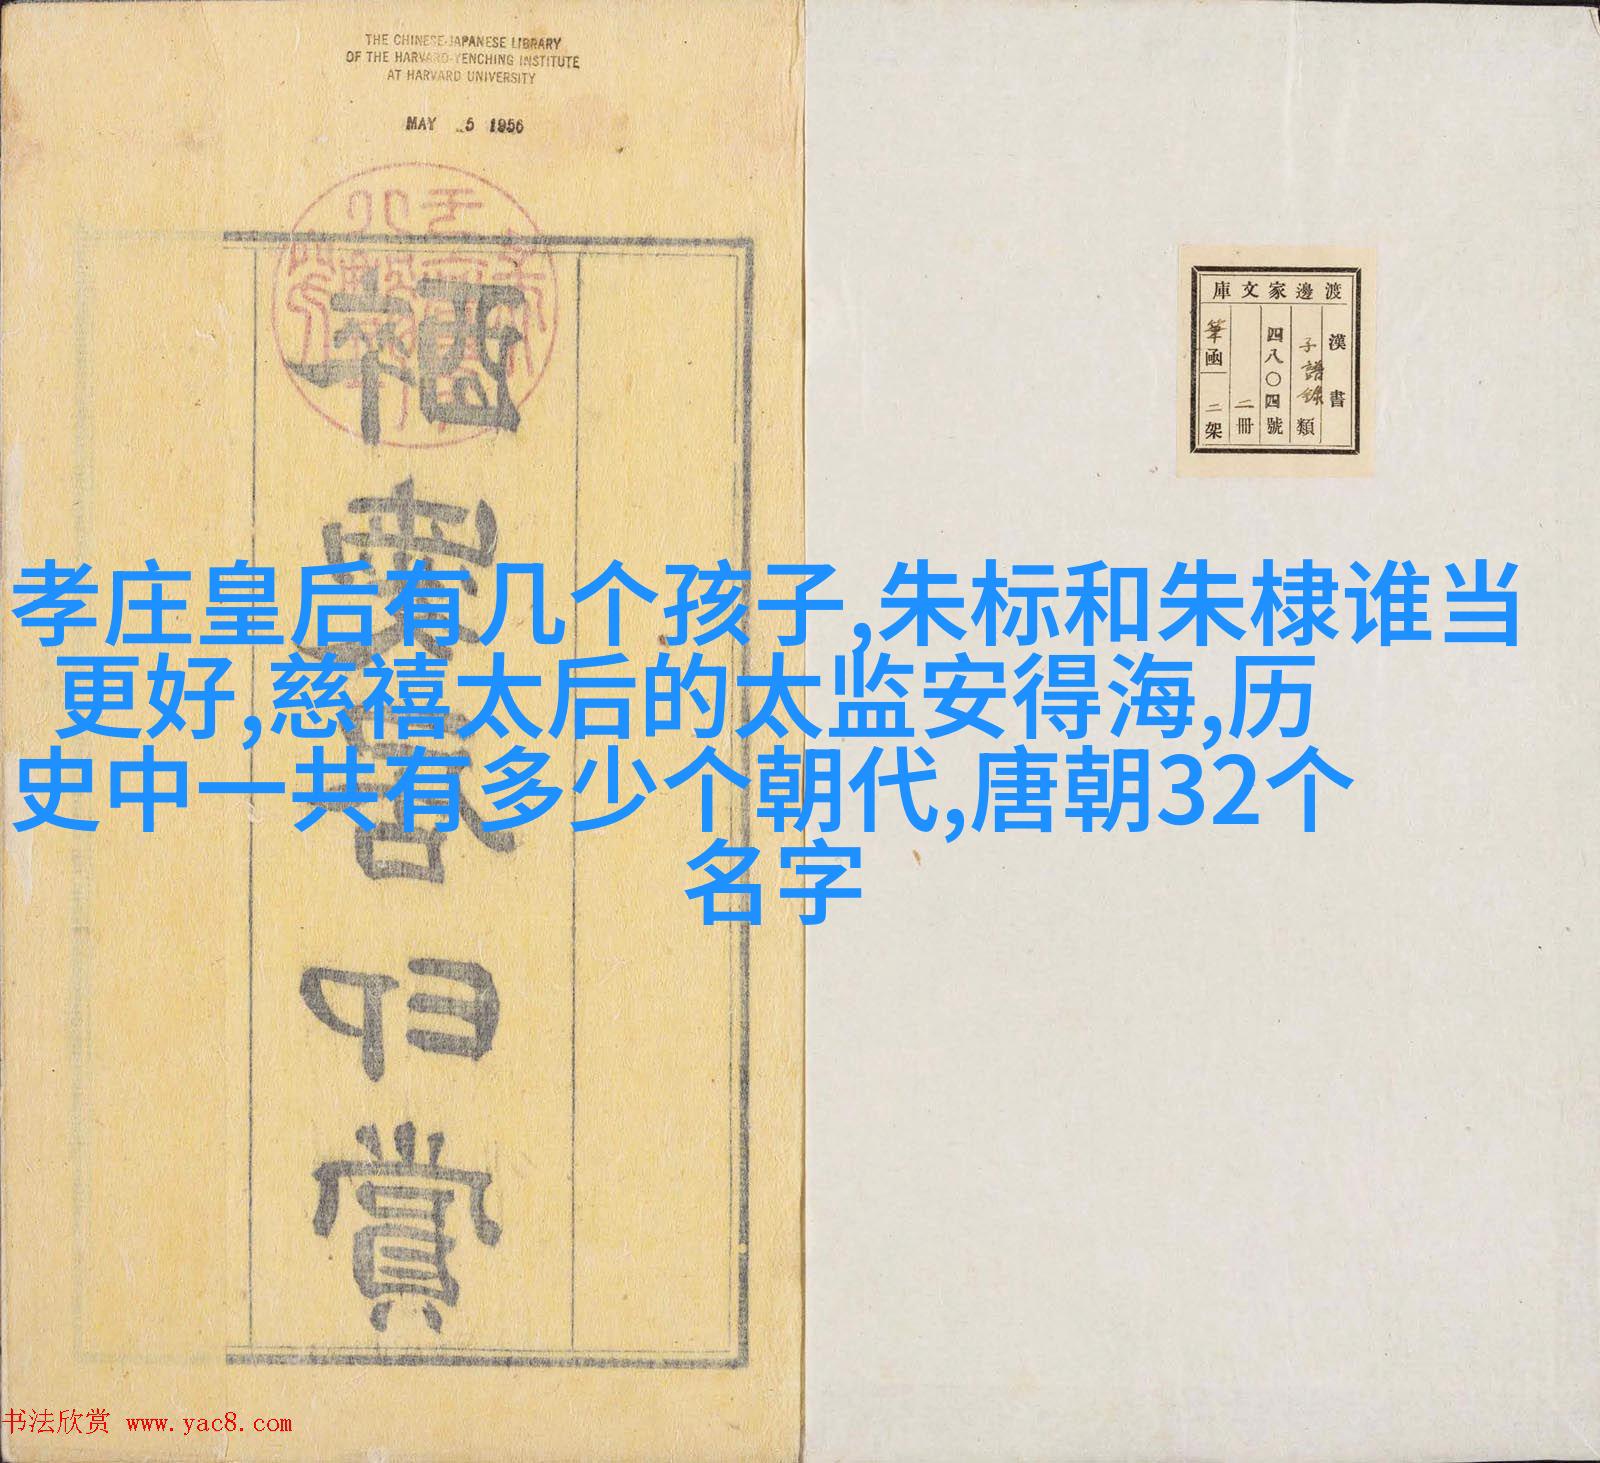 THE CHINESE-JAPANESE LIBRARY
OF THE HARVARD-YENCHING INSTITUTE
AT HARVARD UNIVERSITY
MAY 5 1956
渡邊家文庫
漢書
子語錄類
四八〇四號
二冊
筆函二架
孝庄皇后有几个孩子,朱标和朱棣谁当
更好,慈禧太后的太监安得海,历
史中一共有多少个朝代,唐朝32个
名字
賞
书法欣赏 www.yac8.com